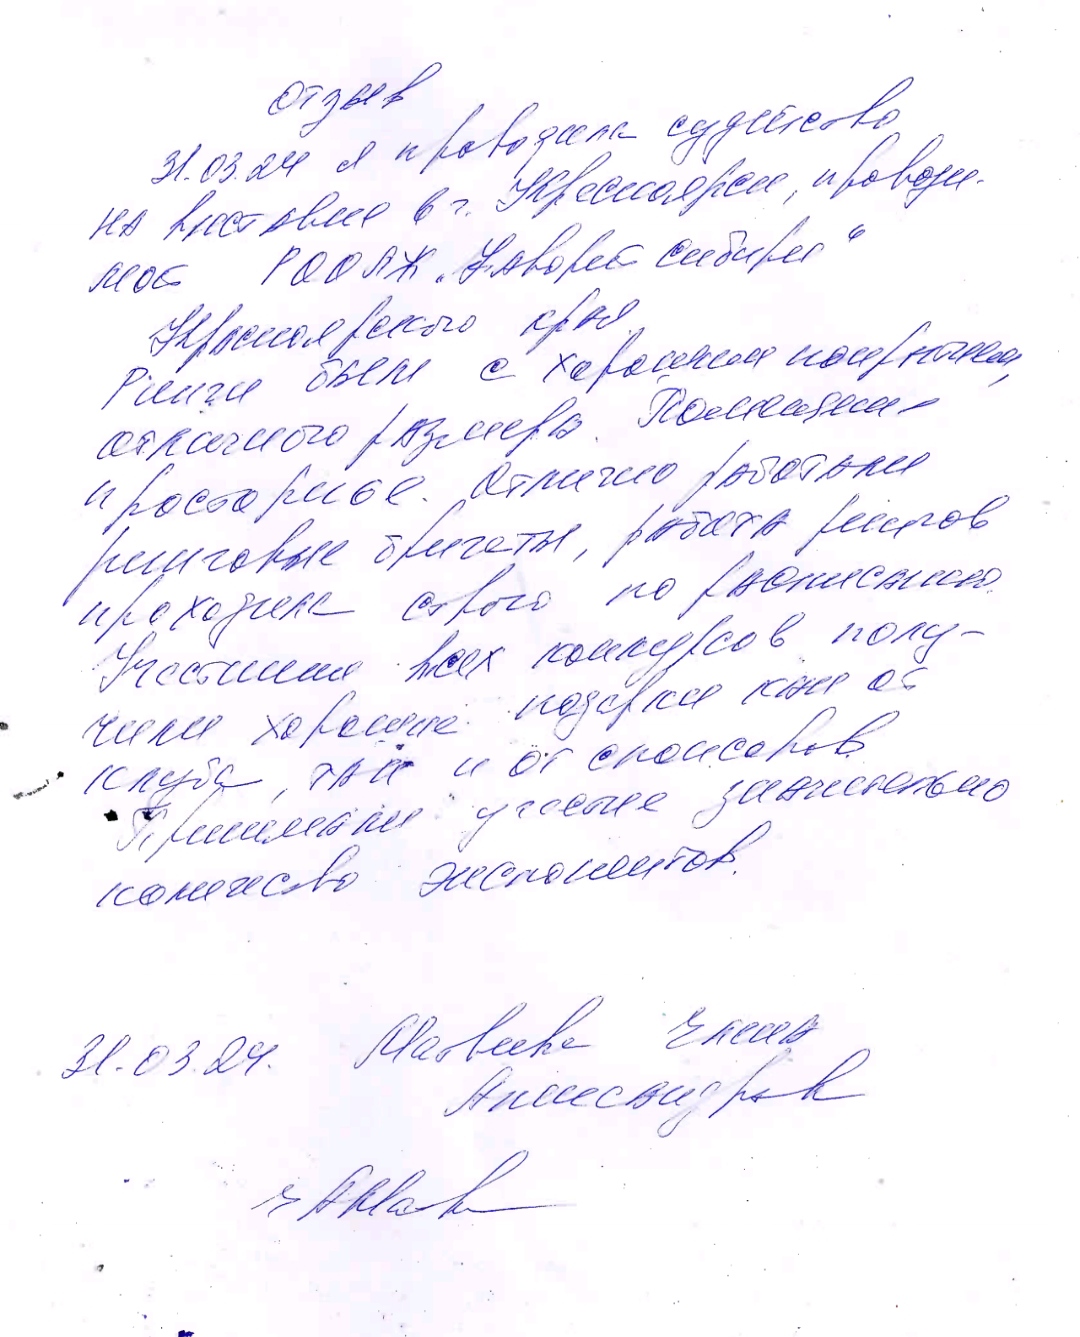 Отзыв
31.03.24 я проводила судейство
на выставке в г. Красноярске, проводи-
мой РООЛЖ "Фаворит Сибири"
Красноярского края.
Ринги были с хорошим покрытием,
отличного размера. Помещение
просторное. Отлично работали
ринговые бригады, работа рингов
проходила строго по расписанию.
Участники всех конкурсов полу-
чили хорошие подарки как от
клуба, так и от спонсоров.
Принимали участие значительно
количество экспонентов.
31.03.24. Матвеева Елена
Александровна